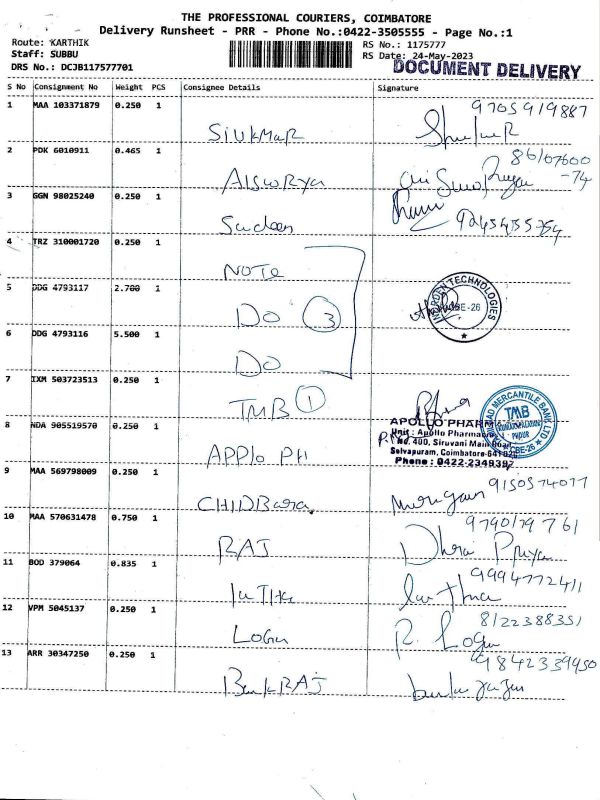 THE PROFESSIONAL COURIERS, COIMBATORE
Delivery Runsheet - PRR - Phone No.:0422-3505555 - Page No.:1
Route: KARTHIK
Staff: SUBBU
DRS No.: DCJB117577701
RS No.: 1175777
RS Date: 24-May-2023
DOCUMENT DELIVERY
S No Consignment No Weight PCS Consignee Details Signature
1 MAA 103371879 0.250 1
9705919887
SIVKMAR
2 PDK 6010911 0.465 1
86107600
-74
AISWRYA
3 GGN 98025240 0.250 1
Sudeen
4 TRZ 310001720 0.250 1
NOTE
5 DDG 4793117 2.700 1
DO 3
TECHNOLOGIES
CBE-26
6 DDG 4793116 5.500 1
DO
7 IXM 503723513 0.250 1
TMB 1
TMB
MERCANTILE BANK LTD
8 NDA 905519570 0.250 1
APOLLO PHARM
Unit : Apollo Pharmac
No. 400, Siruvani Main Road
Selvapuram, Coimbatore-641 026
Phone : 0422-2349392
APPlo PH
9 MAA 569798009 0.250 1
9150574077
CHIDBara
Murugan
10 MAA 570631478 0.750 1
9790179761
RAJ
Dhara Priya
11 BOD 379064 0.835 1
9994772411
12 VPM 5045137 0.250 1
8122388351
LOGU
R. Logu
13 ARR 30347250 0.250 1
9842339950